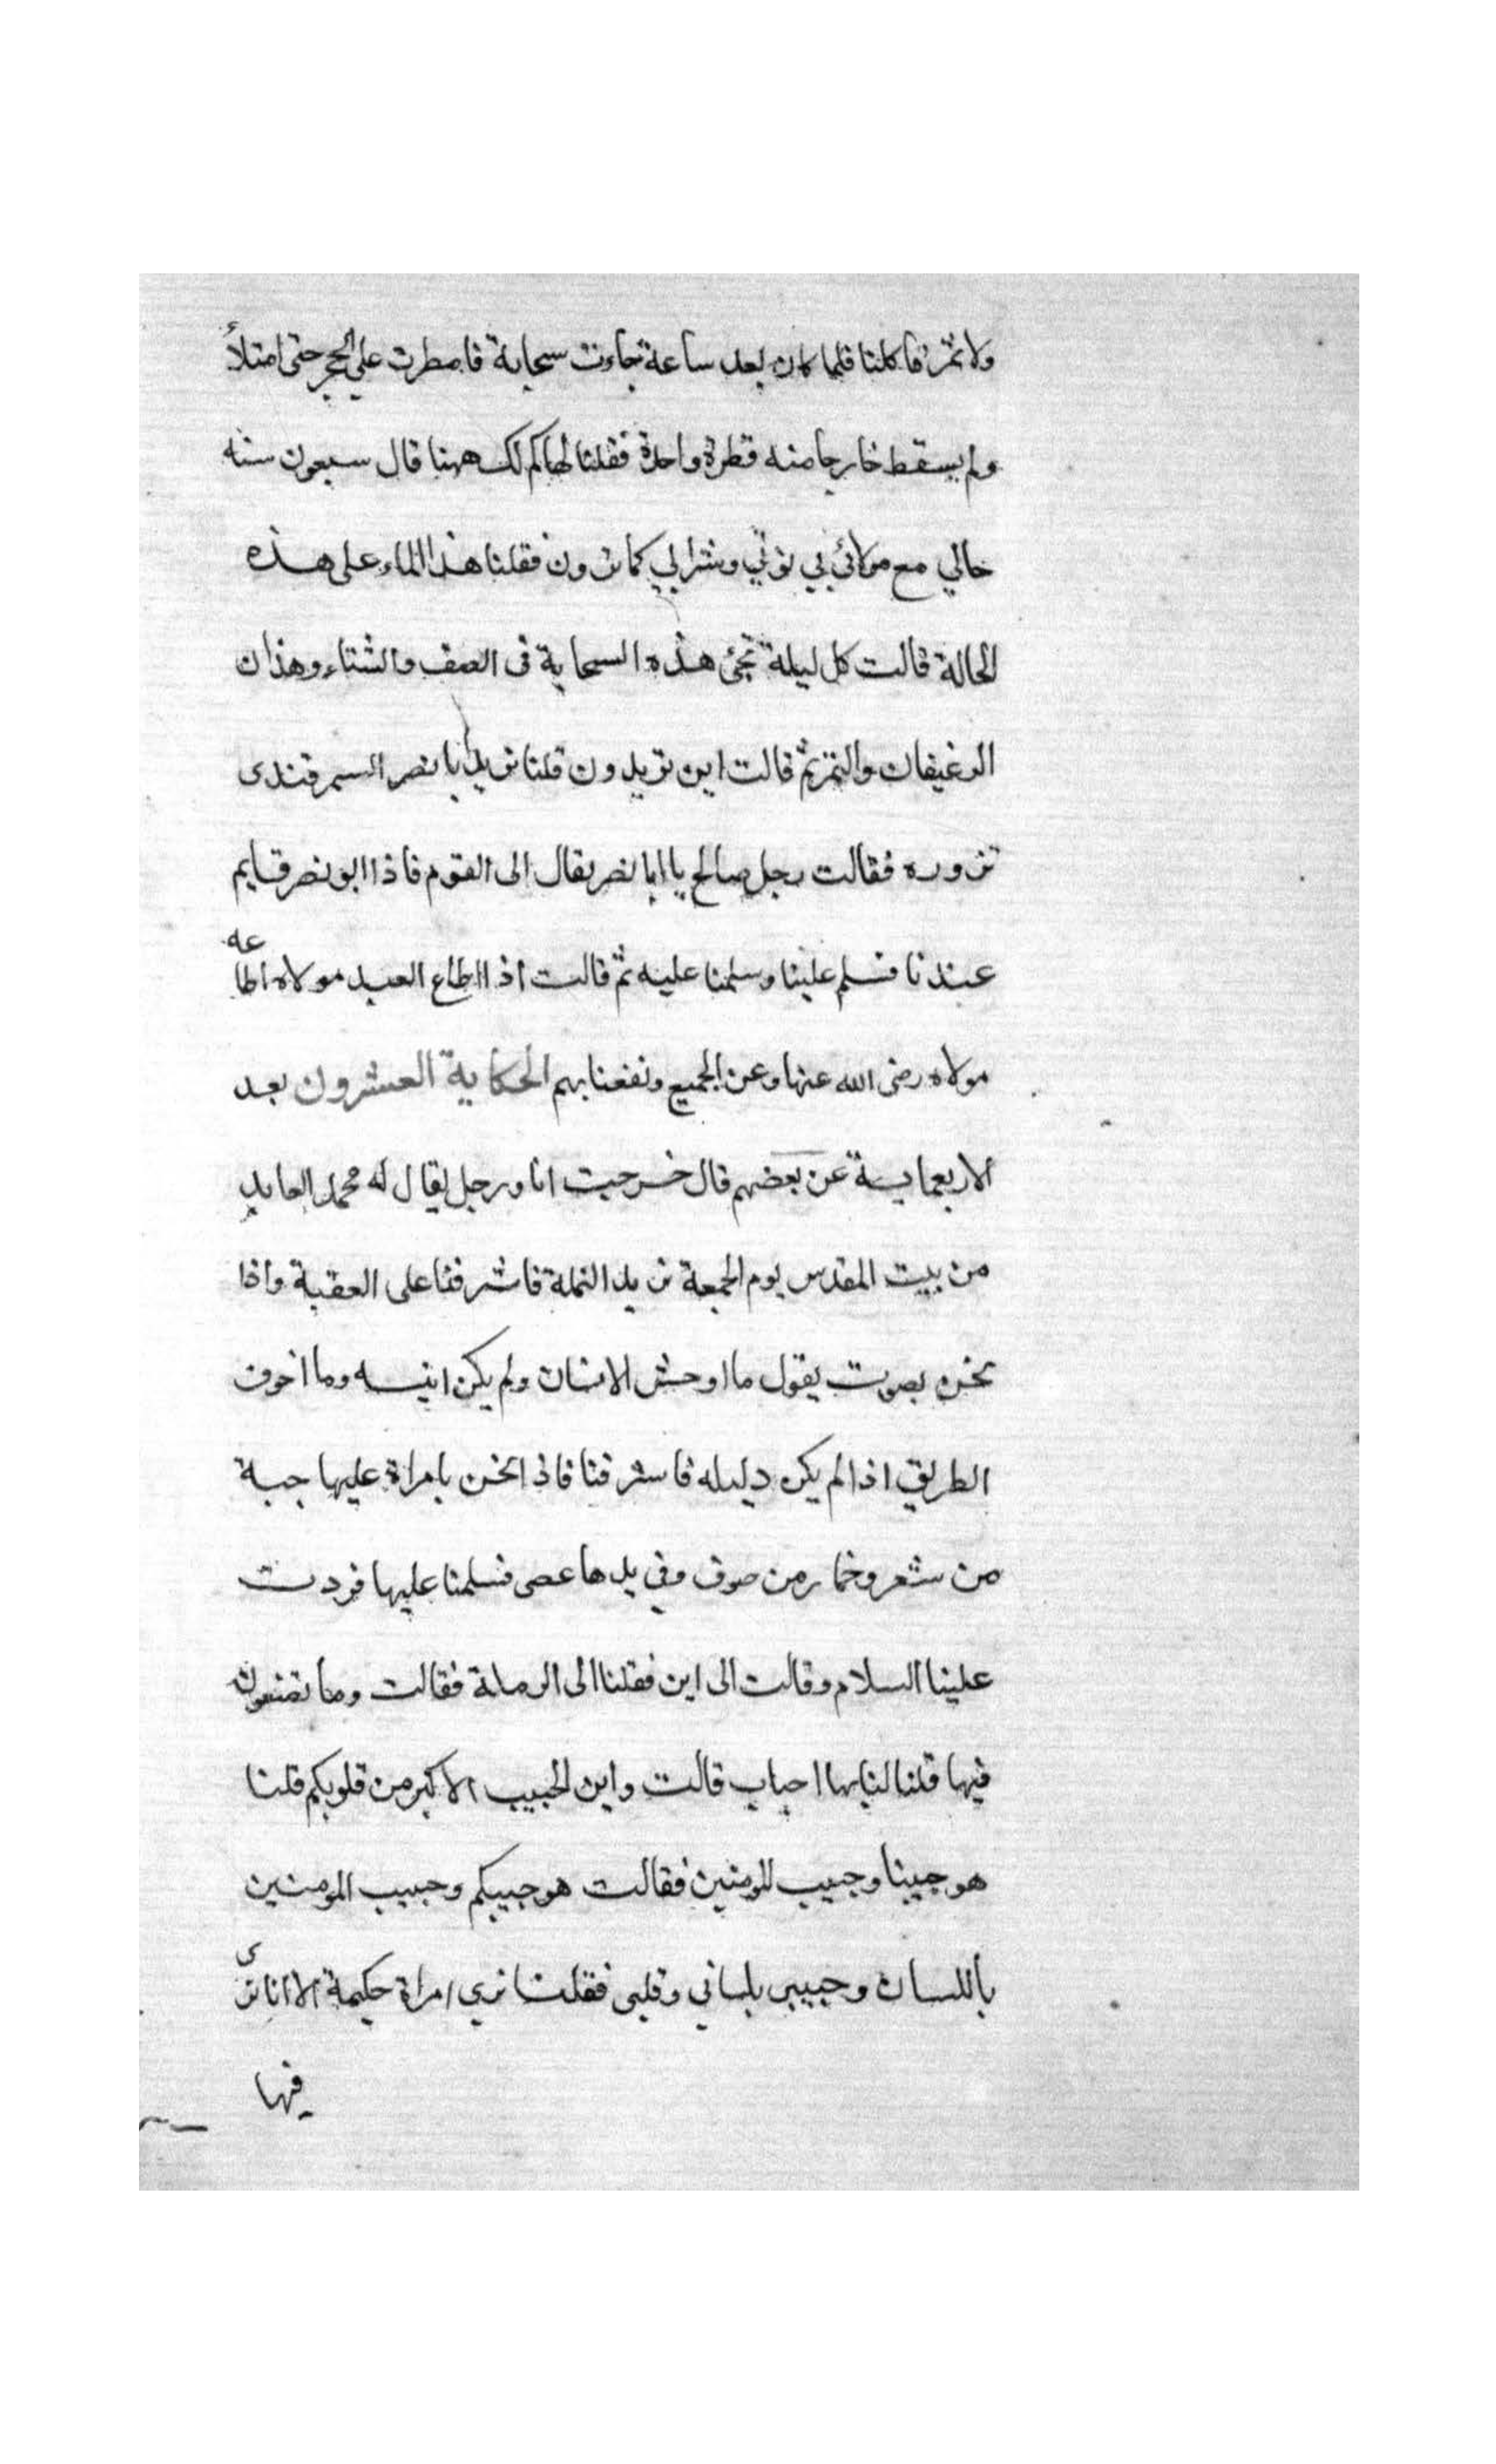 ولا تمر فاكلنا فلما كان بعد ساعة جاءت سحابة فامطرت على الحجر حتى امتلأ
ولم يسقط خارجا منه قطرة واحدة فقلنا لها كم لك ههنا قال سبعون سنه
حالي مع مولائي بي نوتي وشرابي كما ترون فقلنا هذا الماء على هذه
الحالة قالت كل ليلة تجئ هذه السحابة فى الصف والشتاء وهذان
الرغيفان والتمر ثم قالت اين تريدون قلنا نريد ابا نصر السمرقندى
نزوره فقالت رجل صالح يا ابا نصر يقال الى القوم فاذا ابو نصر قايم
عندنا فسلم علينا وسلمنا عليه ثم قالت اذا اطاع العبد مولاه اطاعه
مولاه رضى الله عنها وعن الجميع ونفعنا بهم الحكاية العشرون بعد
الاربعماية عن بعضهم قال خرجت انا ورجل يقال له محمد العابد
من بيت المقدس يوم الجمعة نريد الرملة فاشرفنا على العقبة واذا
نحن بصوت يقول ما اوحش الانسان ولم يكن انيسه وما اخوف
الطريق اذا لم يكن دليله فاشرفنا فاذا نحن بامراة عليها جبة
من شعر وخمار من صوف وفي يدها عصى فسلمنا عليها فردت
علينا السلام وقالت الى اين فقلنا الى الرملة فقالت وما تصنعون
فيها قلنا لنا بها احباب قالت واين الحبيب الاكبر من قلوبكم قلنا
هو حبيبنا وحبيب المومنين فقالت هو حبيبكم وحبيب المومنين
باللسان وحبيبى بلساني وقلبى فقلنا نري امراة حكيمة الا انا نرى
فيها